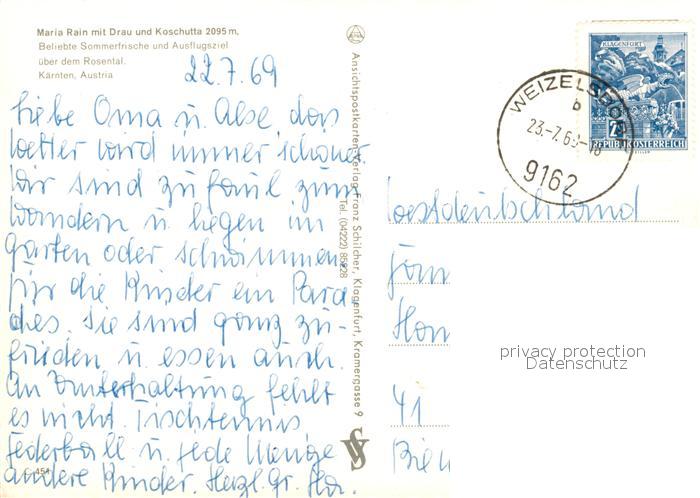 Maria Rain mit Drau und Koschutta 2095 m,
Beliebte Sommerfrische und Ausflugsziel
über dem Rosental.
Kärnten, Austria
22.7.69
Liebe Oma u. Ilse das
Wetter wird immer schöner
Wir sind zu faul zum
wandern u. liegen im
Garten oder schwimmen
für die Kinder ein Para
dies. Sie sind ganz zu-
frieden u. essen auch.
An Unterhaltung fehlt
es nicht. Tischtennis
Federball u. jede Menge
andere Kinder. Herzl. Gr.
451
Ansichtspostkarten-Verlag Franz Schilcher, Klagenfurt, Kramergasse 9
Tel. (04222) 85828
KLAGENFURT
2
REPUBLIK ÖSTERREICH
WEIZELSDORF
b
23.-7.69-18
9162
Westdeutschland
41
privacy protection
Datenschutz